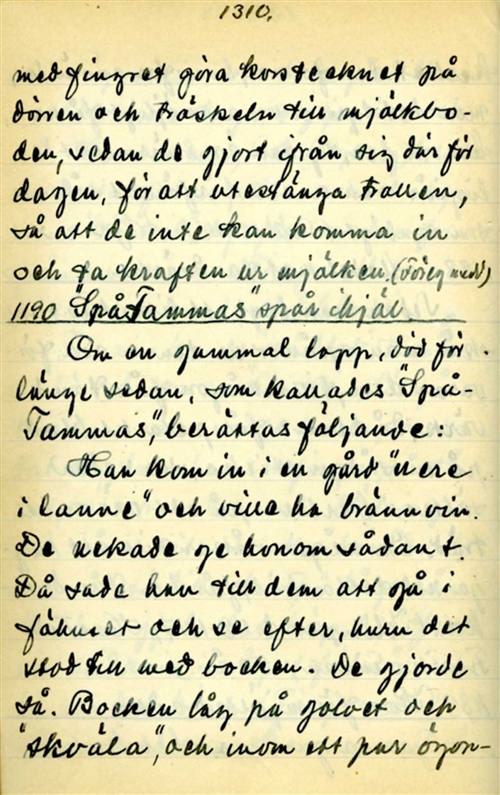 1310.
med fingret göra korstecknet på
dörren och tröskeln till mjölkbo-
den, sedan de gjort ifrån sig där för
dagen, för att utestänga trollen,
så att de inte kan komma in
och ta kraften ur mjölken. (Föreg. medd)
1190 "SpåTammas" spår ihjäl
Om en gammal lapp, död för
länge sedan, som kallades "Spå-
Tammas", berättas följande:
Han kom in i en gård "nere
i lanne" och ville ha brännvin.
De nekade ge honom sådant.
Då sade han till dem att gå i
fähuset och se efter, huru det
stod till med bocken. De gjorde
så. Bocken låg på golvet och
"skväla", och inom ett par ögon-